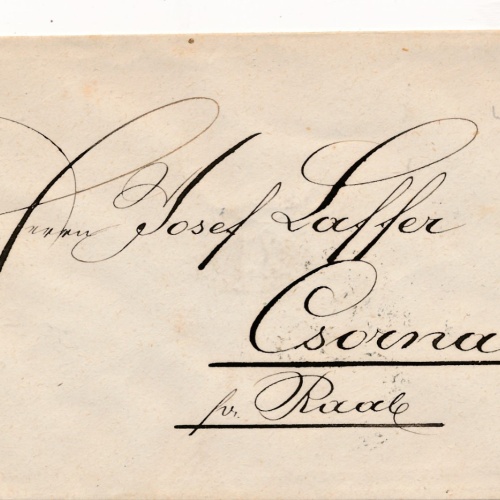 Herrn Josef Laffer
Csorna
pr. Raab